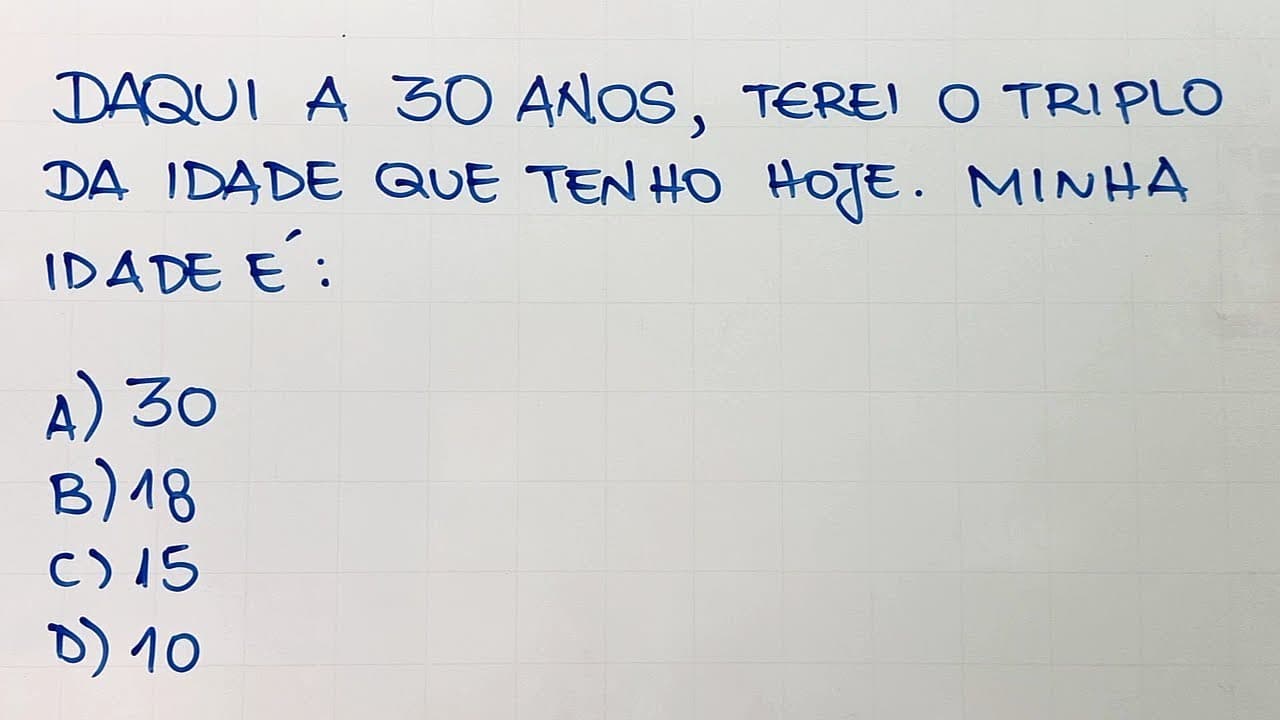 DAQUI A 30 ANOS, TEREI O TRIPLO
DA IDADE QUE TENHO HOJE. MINHA
IDADE É:
A) 30
B) 18
C) 15
D) 10